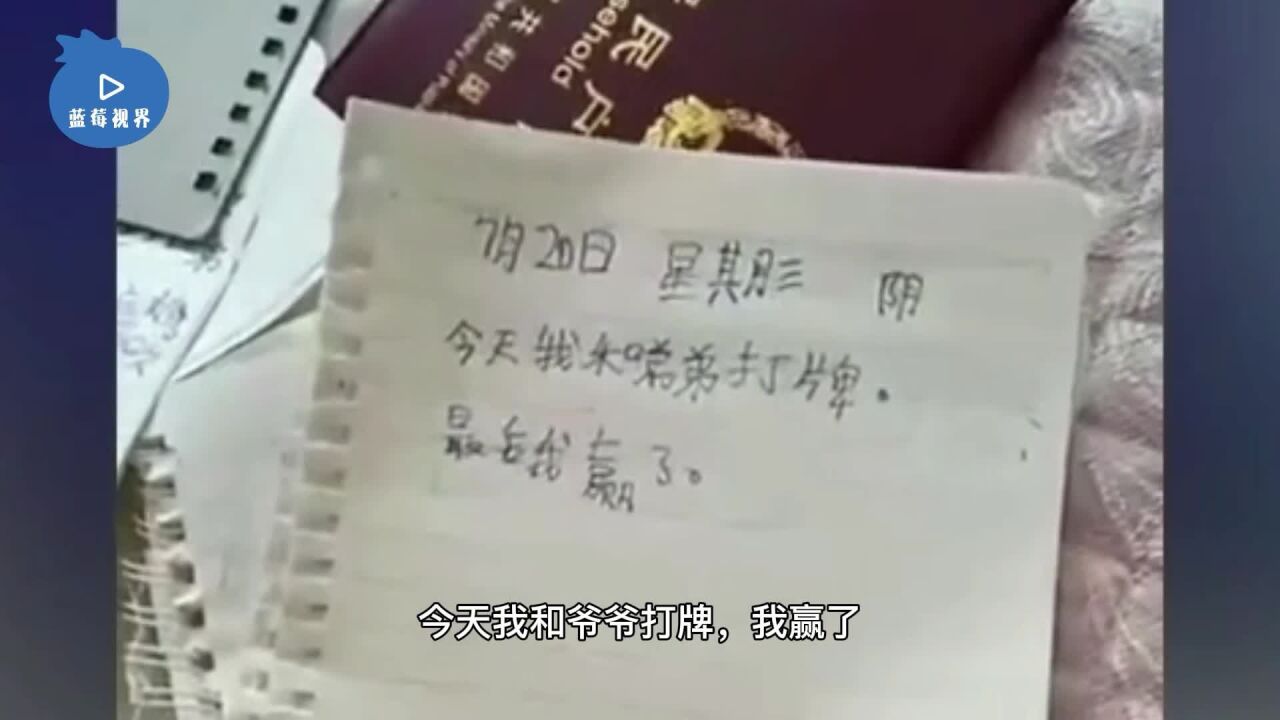 蓝莓视界
共和国
民户
sehold
7月20日 星期三 阴
今天我和弟弟打牌。
最后我赢了。
今天我和爷爷打牌，我赢了